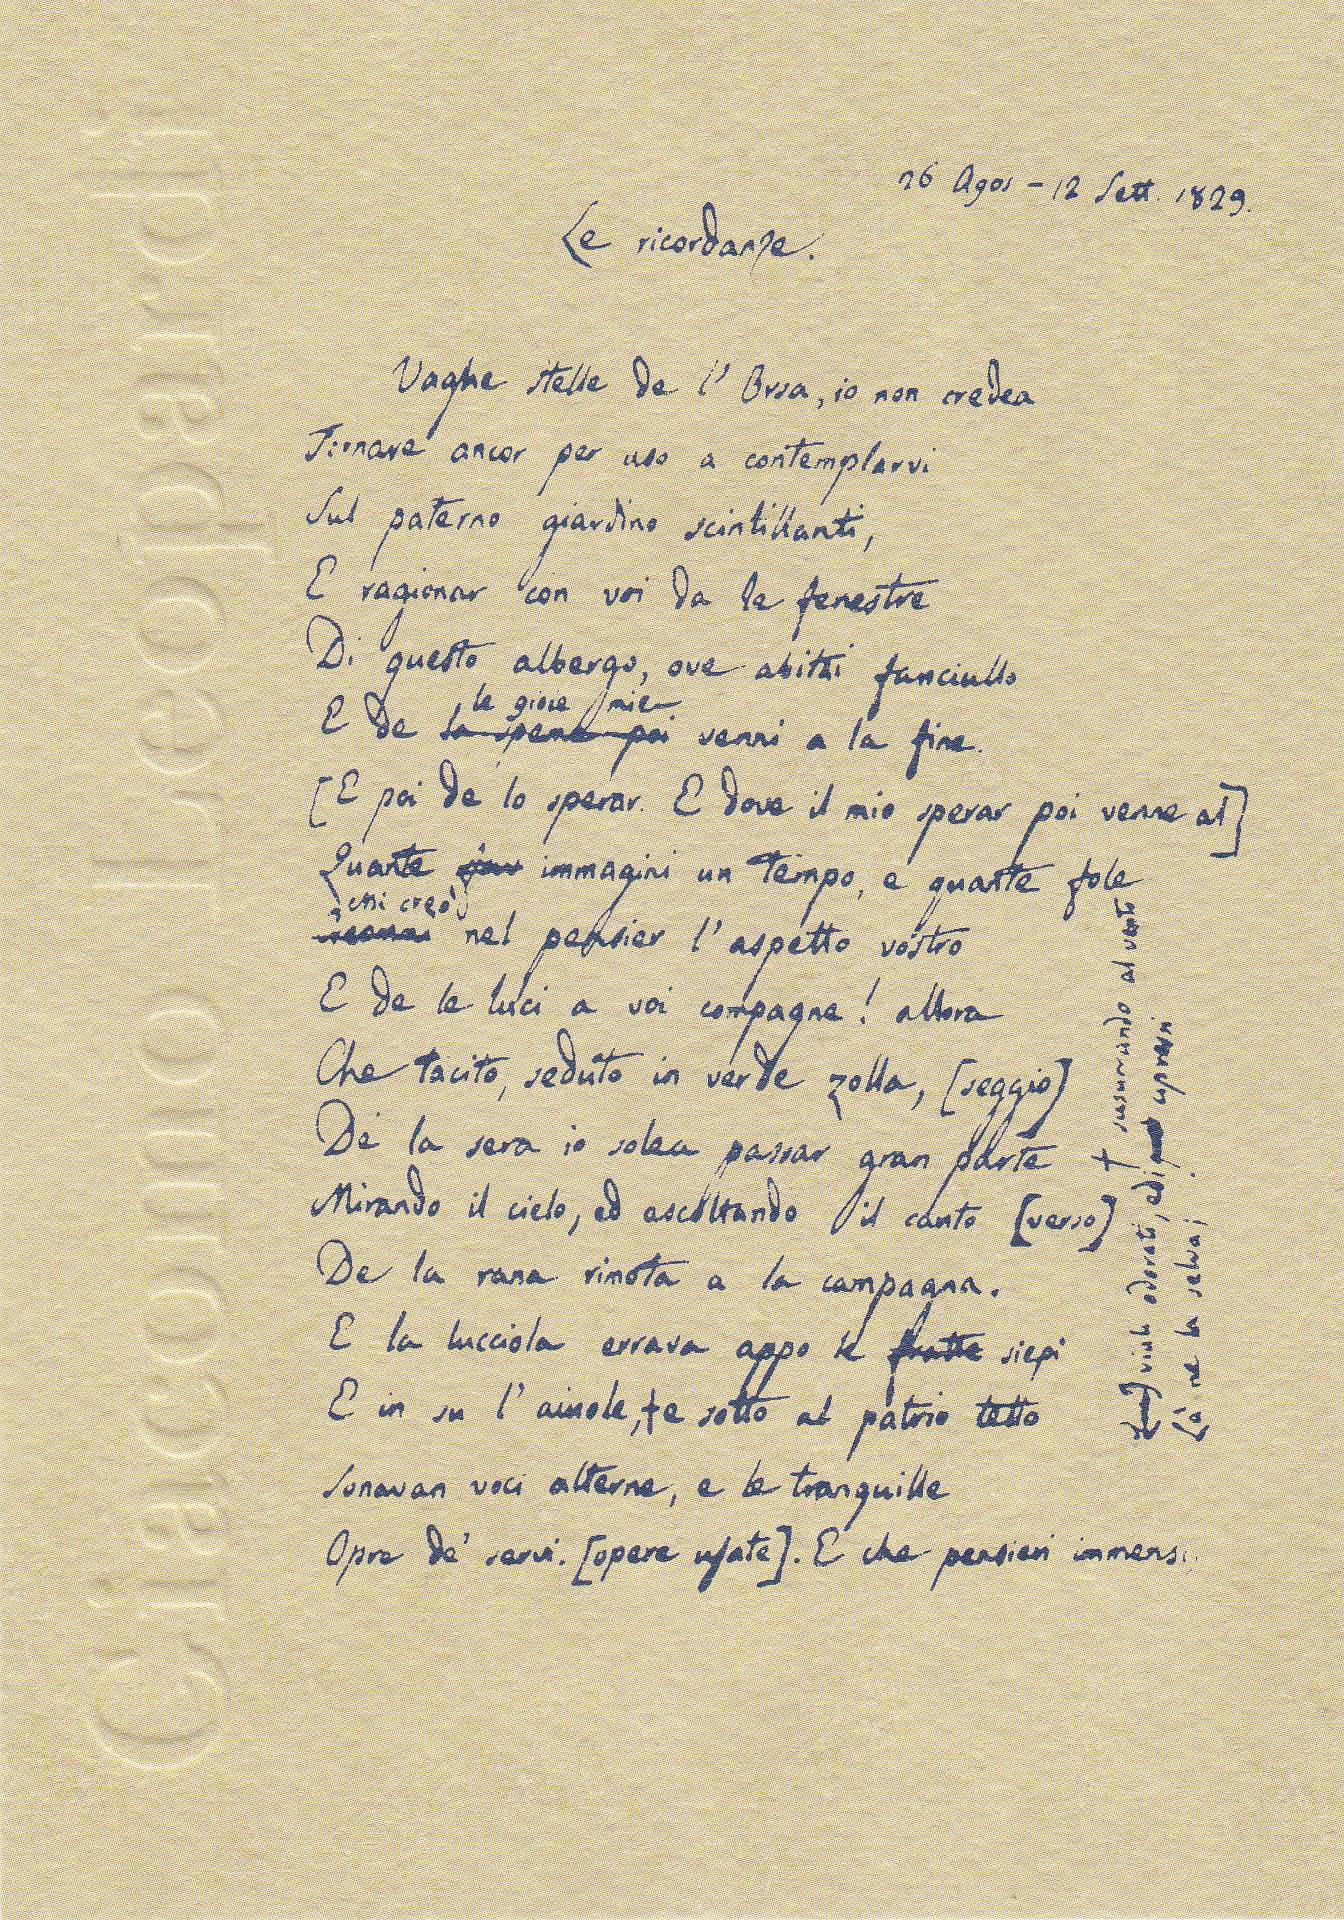 26 Agos – 12 Sett. 1829.
Le ricordanze.
Vaghe stelle de l' Orsa, io non credea
Tornare ancor per uso a contemplarvi
Sul paterno giardino scintillanti,
E ragionar con voi da le fenestre
Di questo albergo, ove abitai fanciullo
le gioie mie
E de la speme poi venni a la fine.
[E poi de lo sperar. E dove il mio sperar poi venne al]
Quante immagini un tempo, e quante fole
Mi creò
nel pensier l' aspetto vostro
E de le luci a voi compagne! allora
Che tacito, seduto in verde zolla, [seggio]
De la sera io solea passar gran parte
Mirando il cielo, ed ascoltando il canto [verso]
De la rana rimota a la campagna.
E la lucciola errava appo le fratte siepi
E in su l' aiuole,† e sotto al patrio tetto
Sonavan voci alterne, e le tranquille
Opre de' servi. [opere usate]. E che pensieri immensi
† susurrando al vento
viali odorati, ed i cipressi
Là ne la selva;
Giacomo Leopardi